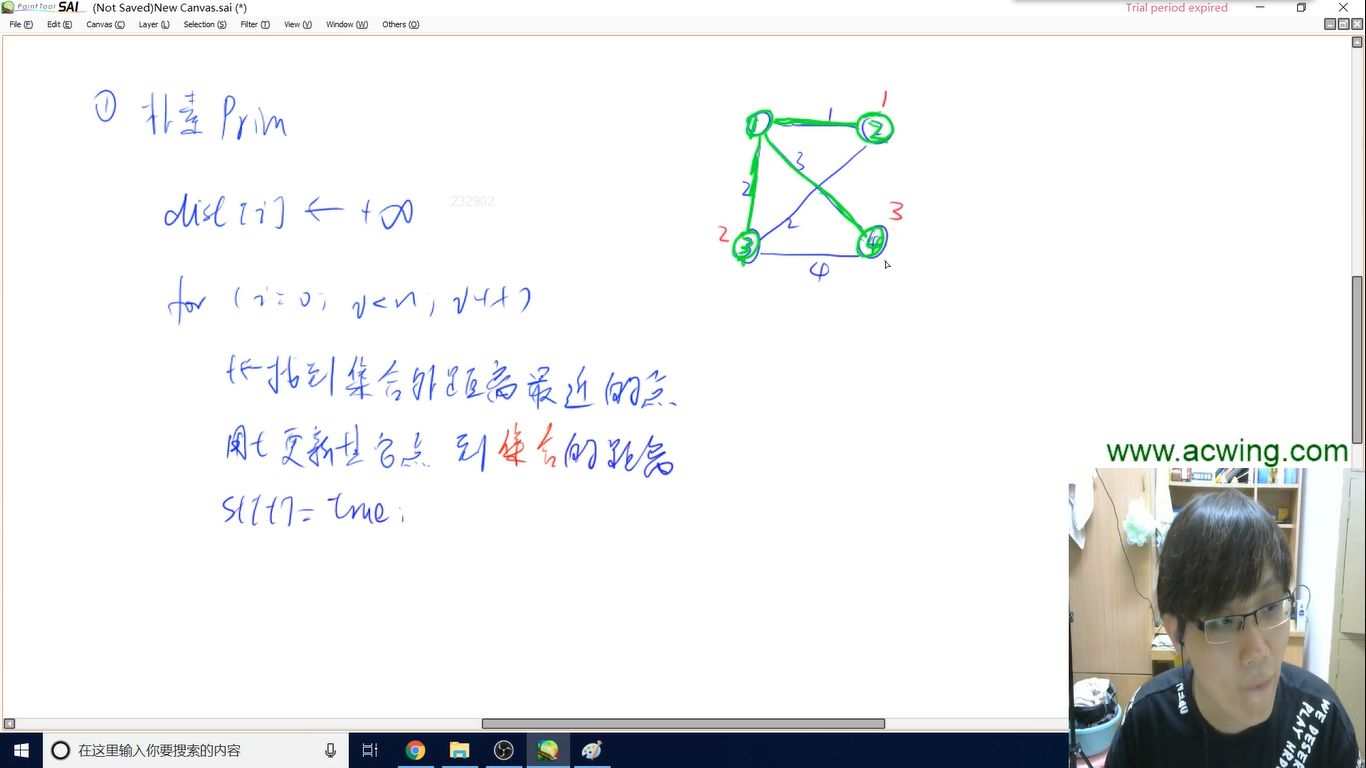 PaintTool SAI (Not Saved)New Canvas.sai (*)
Trial period expired
File (F) Edit (E) Canvas (C) Layer (L) Selection (S) Filter (T) View (V) Window (W) Others (O)
① 朴素 Prim
dist[i] ← +∞
232902
for (i=0; i<n; i++)
t←找到集合外距离最近的点
用t更新其它点 到集合的距离
st[t]=true;
1
1 1 2
2 3
2 2 3
3 4
4
www.acwing.com
WE DESER
PLAY HAR
在这里输入你要搜索的内容